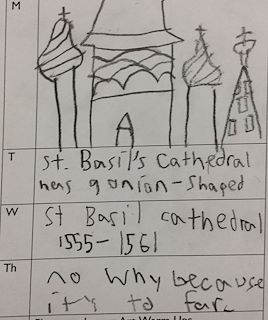 M
T
St. Basil's Cathedral
has 9 onion-Shaped
W
St Basil cathedral
1555-1561
Th
no Why because
it's to far.